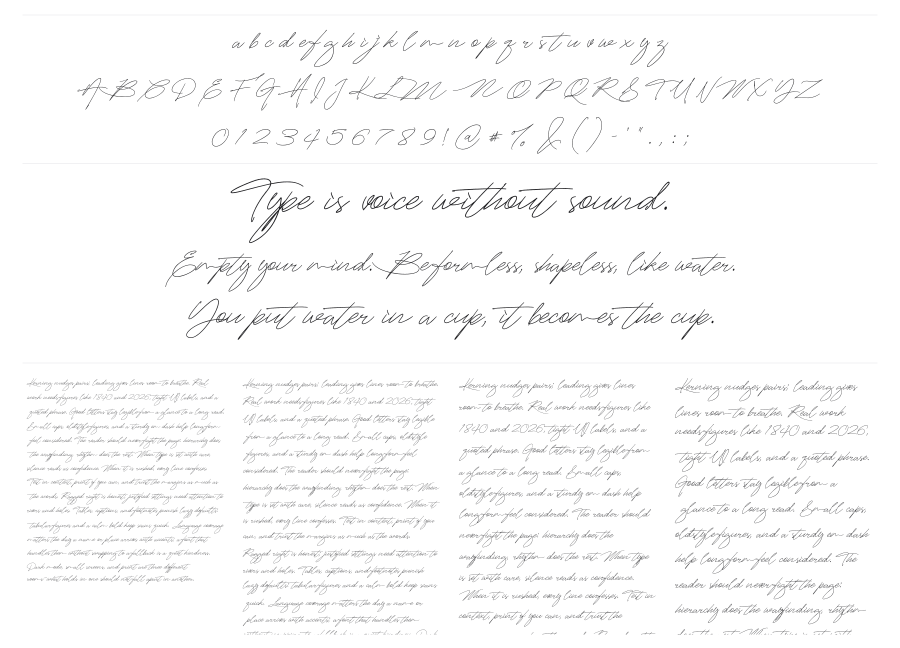 a b c d e f g h i j k l m n o p q r s t u v w x y z
A B C D E F G H I J K L M N O P Q R S T U V W X Y Z
0 1 2 3 4 5 6 7 8 9 ! @ # % & ( ) - ' " . , : ;
Type is voice without sound.
Empty your mind. Be formless, shapeless, like water.
You put water in a cup, it becomes the cup.
Kerning nudges pairs; leading gives lines room to breathe. Real
work needs figures like 1840 and 2026, tight UI labels, and a
quoted phrase. Good letters stay legible from a glance to a long read.
Small caps, oldstyle figures, and a sturdy en dash help longform
feel considered. The reader should never fight the page; hierarchy does
the wayfinding, rhythm does the rest. When type is set with care,
silence reads as confidence. When it is rushed, every line confesses.
Test in context, print if you can, and trust the margins as much as
the words. Ragged right is honest, justified settings need attention to
rivers and holes. Tables, captions, and footnotes punish lazy defaults.
Tabular figures and a calm bold keep rows quiet. Language coverage
matters the day a name or place arrives with accents; a font that
handles them without swapping to a fallback is a quiet kindness.
Kerning nudges pairs; leading gives lines room to breathe.
Real work needs figures like 1840 and 2026, tight
UI labels, and a quoted phrase. Good letters stay legible
from a glance to a long read. Small caps, oldstyle
figures, and a sturdy en dash help longform feel
considered. The reader should never fight the page;
hierarchy does the wayfinding, rhythm does the rest. When
type is set with care, silence reads as confidence. When it
is rushed, every line confesses. Test in context, print if you
can, and trust the margins as much as the words.
Ragged right is honest, justified settings need attention to
rivers and holes. Tables, captions, and footnotes punish
lazy defaults. Tabular figures and a calm bold keep rows
quiet. Language coverage matters the day a name or
place arrives with accents; a font that handles them
Kerning nudges pairs; leading gives lines
room to breathe. Real work needs figures like
1840 and 2026, tight UI labels, and a
quoted phrase. Good letters stay legible from
a glance to a long read. Small caps,
oldstyle figures, and a sturdy en dash help
longform feel considered. The reader should
never fight the page; hierarchy does the
wayfinding, rhythm does the rest. When type
is set with care, silence reads as confidence.
When it is rushed, every line confesses. Test in
context, print if you can, and trust the
Kerning nudges pairs; leading gives
lines room to breathe. Real work
needs figures like 1840 and 2026,
tight UI labels, and a quoted phrase.
Good letters stay legible from a
glance to a long read. Small caps,
oldstyle figures, and a sturdy en dash
help longform feel considered. The
reader should never fight the page;
hierarchy does the wayfinding, rhythm